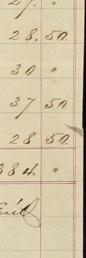 27. "
28. 50.
30 "
37 50.
28 50.
384. "